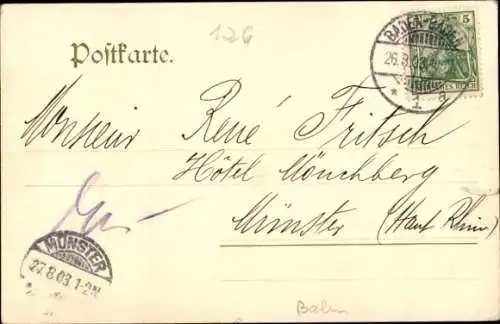 126
Postkarte.
BADEN-BADEN
5
26.8.03
* 1 a
REICH
Monsieur René Fritsch
Hôtel Mönchberg
Münster (Haut Rhin)
MÜNSTER
27.8.03 1-2N
Bahn